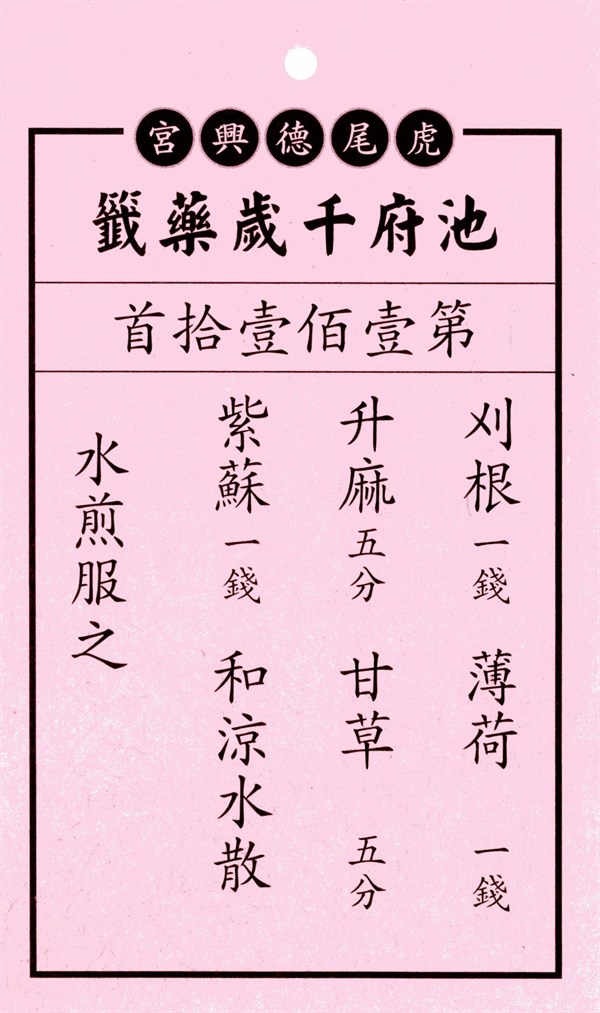 虎尾德興宮
池府千歲藥籤
第壹佰壹拾首
刈根一錢 薄荷 一錢
升麻五分 甘草 五分
紫蘇一錢 和涼水散
水煎服之